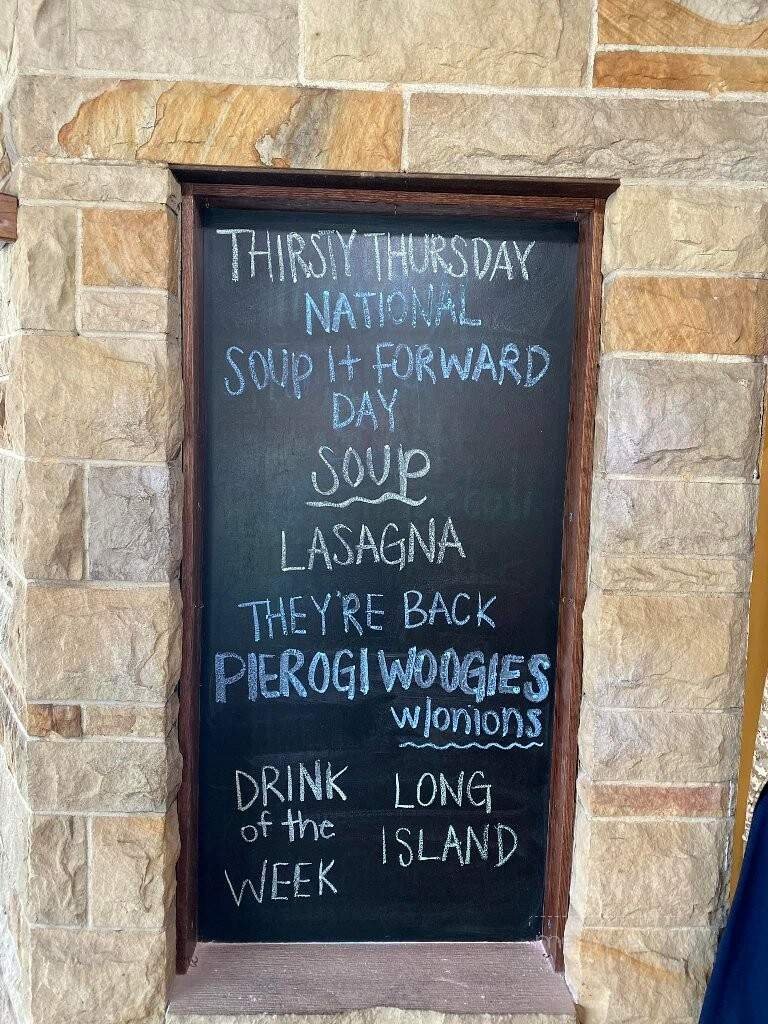 THIRSTY THURSDAY
NATIONAL
SOUP It FORWARD
DAY
SOUP
LASAGNA
THEY'RE BACK
PIEROGI WOOGIES
w/onions
DRINK
of the
WEEK
LONG
ISLAND